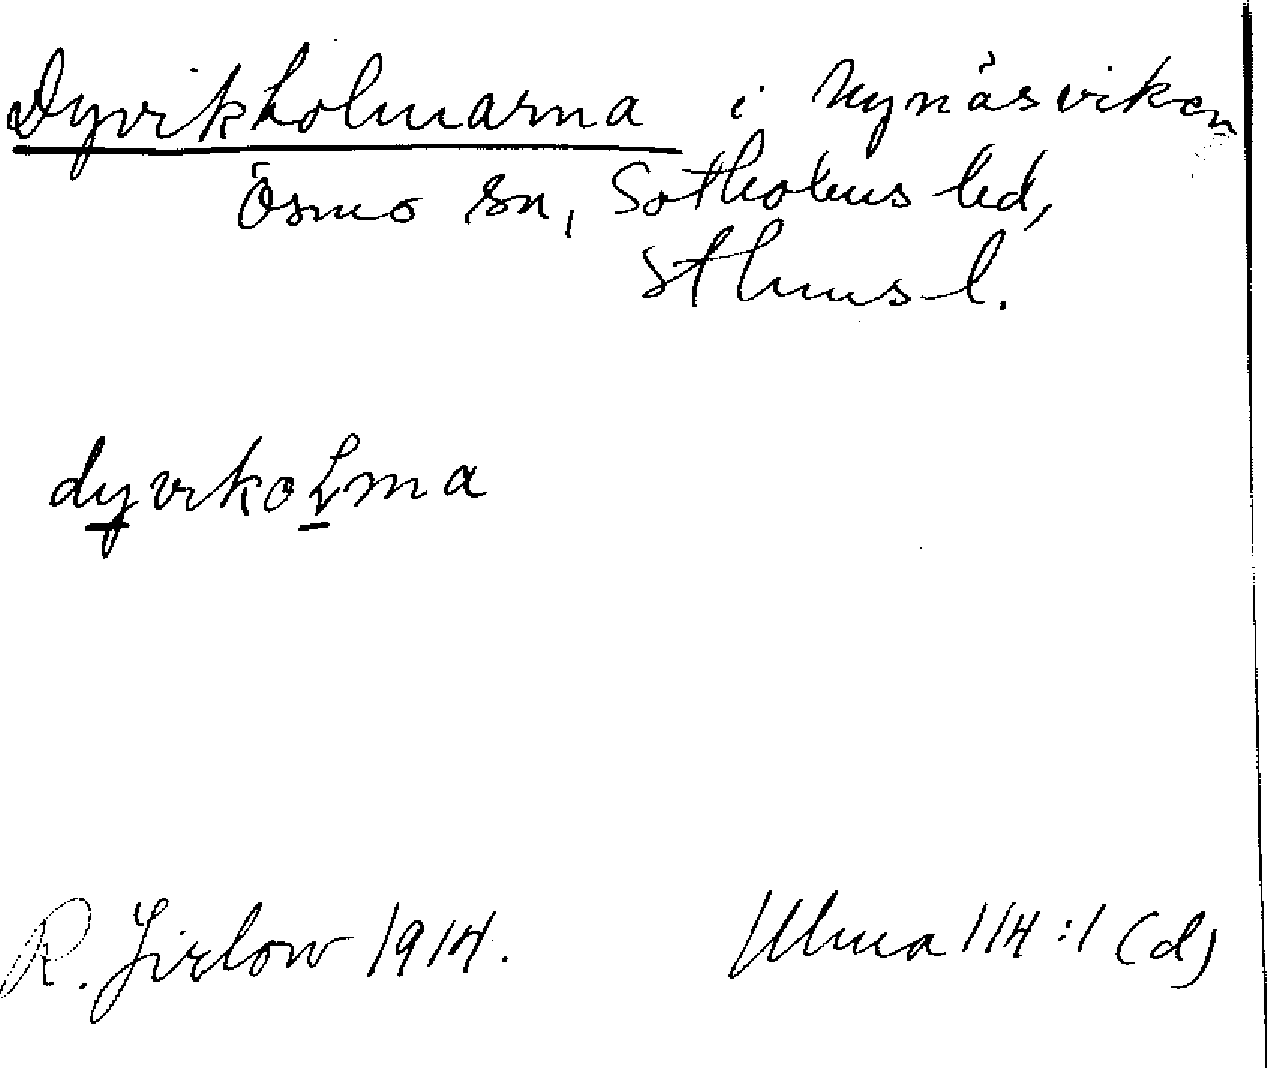 Dyvikholmarna i Nynäsviken
Ösmo sn, Sotholms hd,
Sthms l.
dyvikoLma
R. Jirlow 1914. Ulma 114:1 (d)